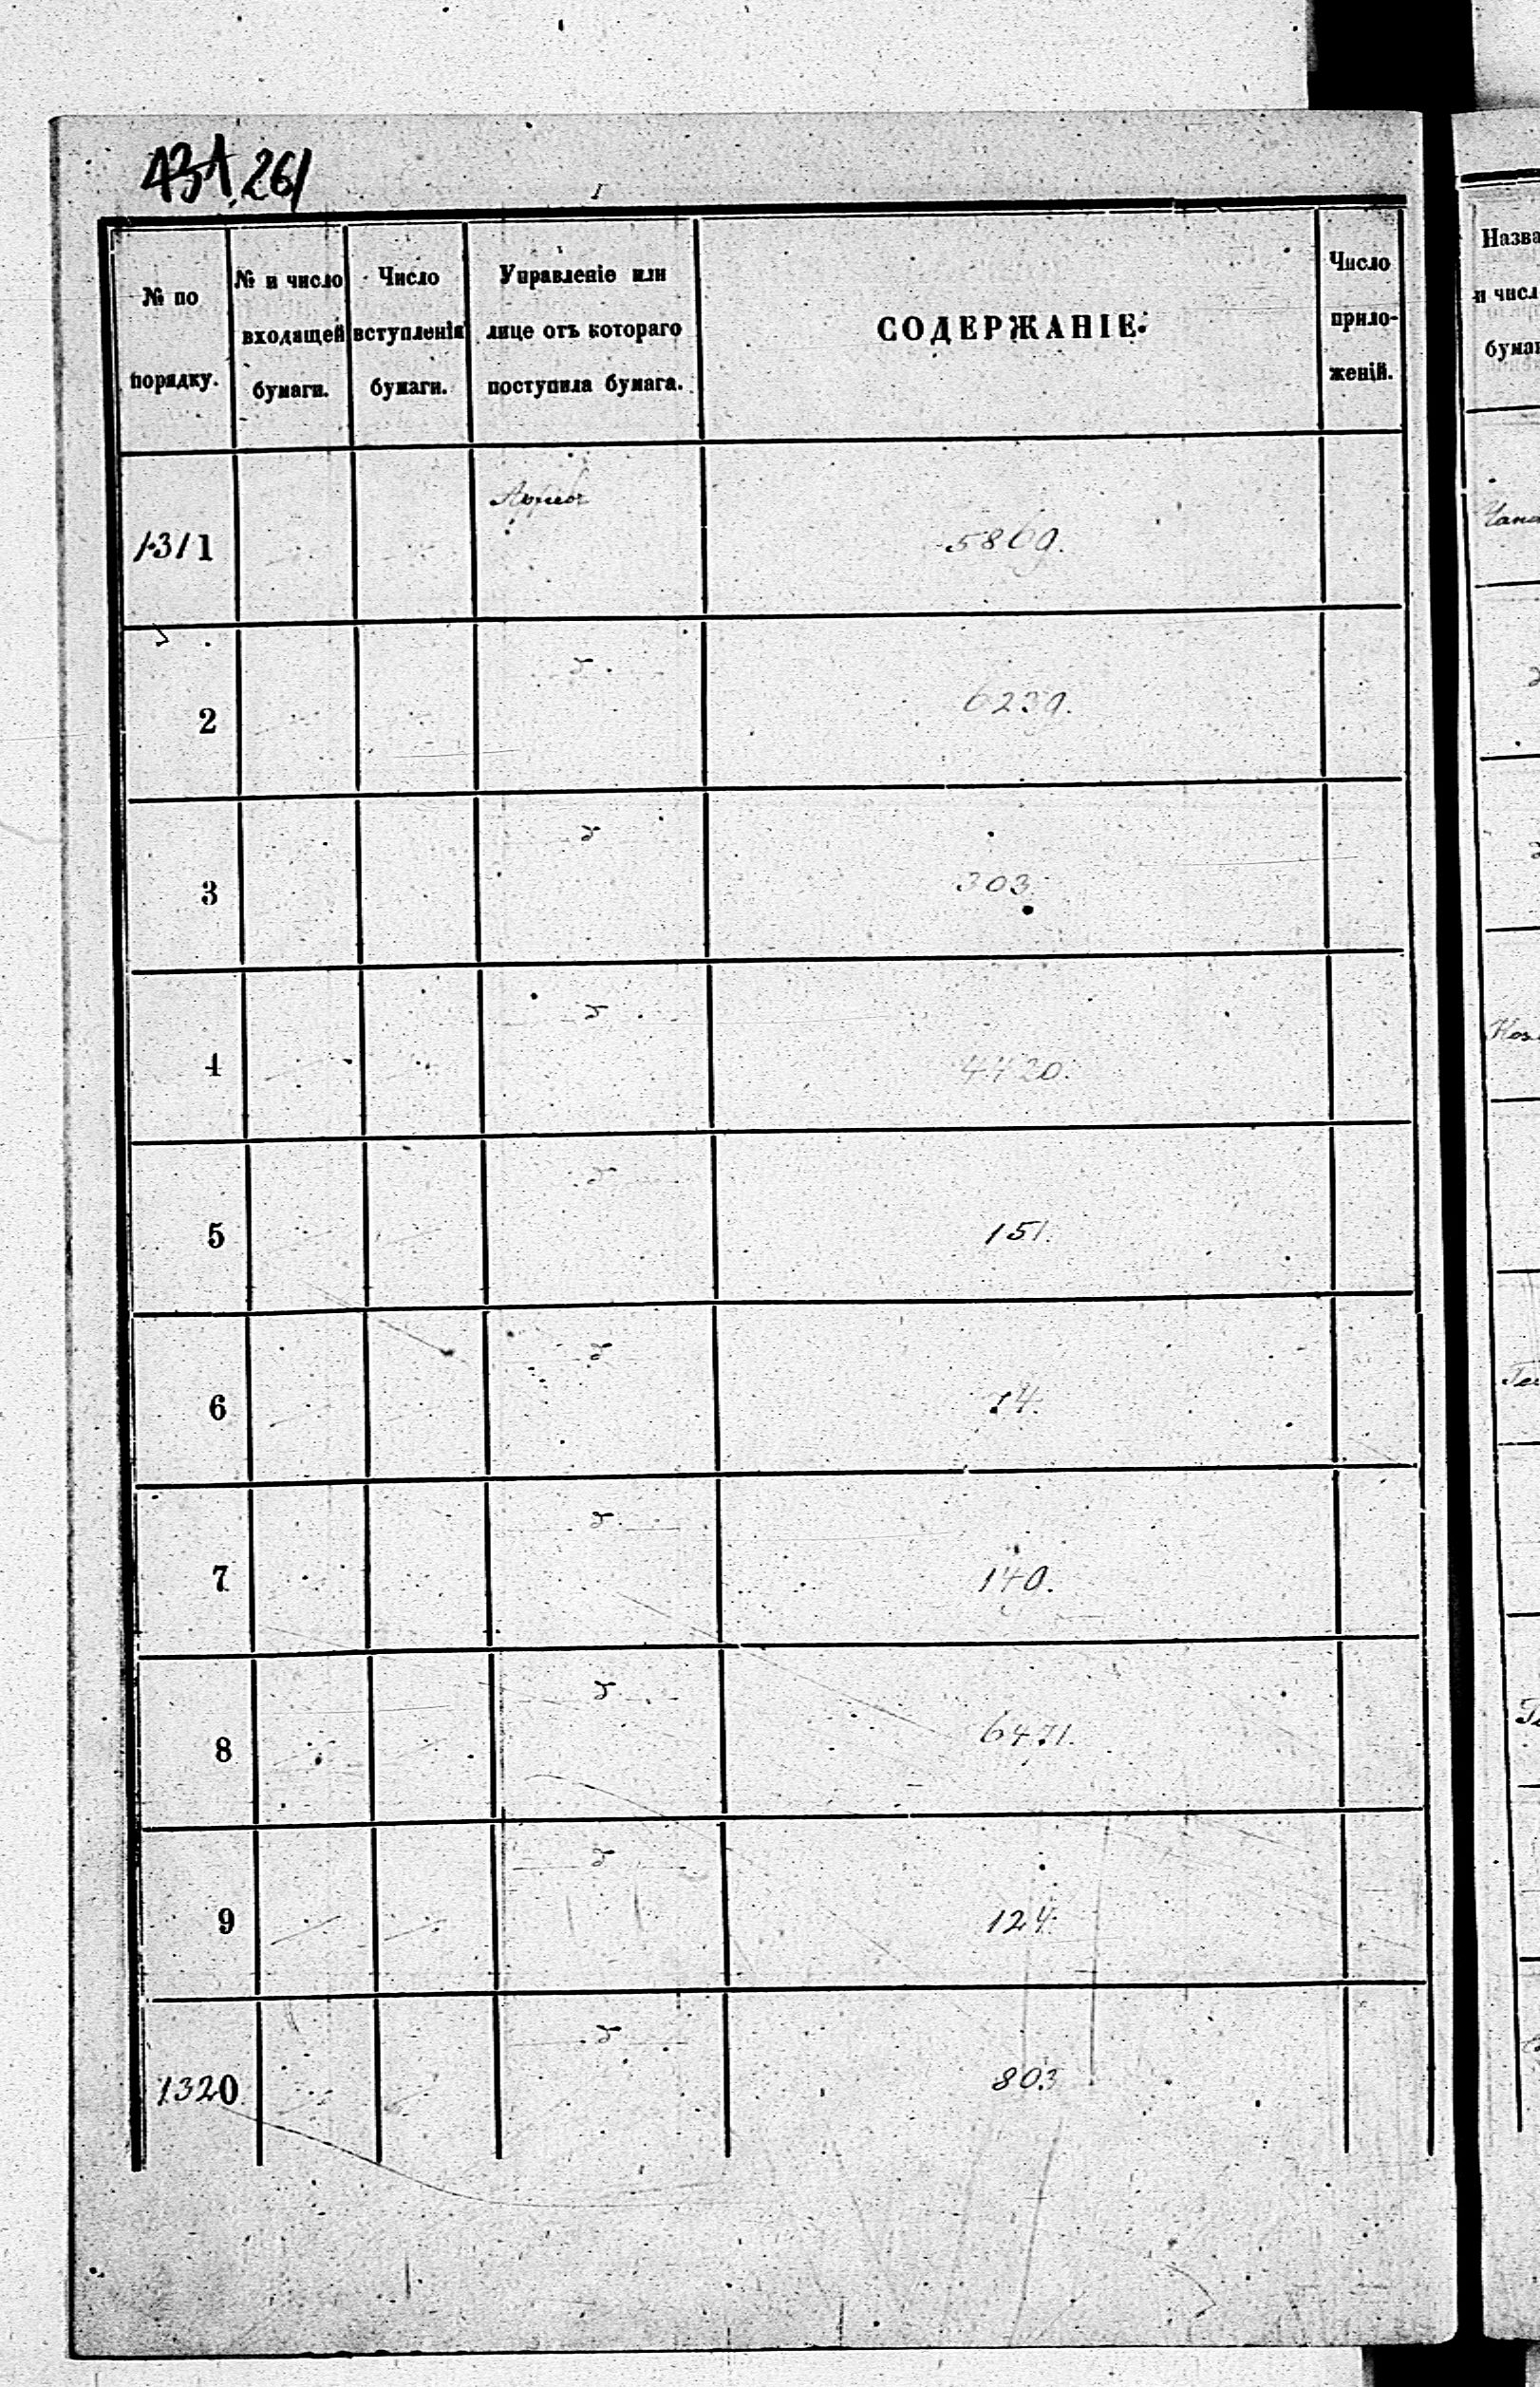 431,261
№ по порядку.
№ и число входящей бумаги.
Число вступленія бумаги.
Управленіе или лице отъ котораго поступила бумага.
СОДЕРЖАНІЕ.
Число прило-
женій.
1311
Архивъ
5869.
2
6239.
3
303.
4
4420.
5
151.
6
14.
7
140.
8
6471.
9
124.
1320
803
Назва
и числ
бумаг